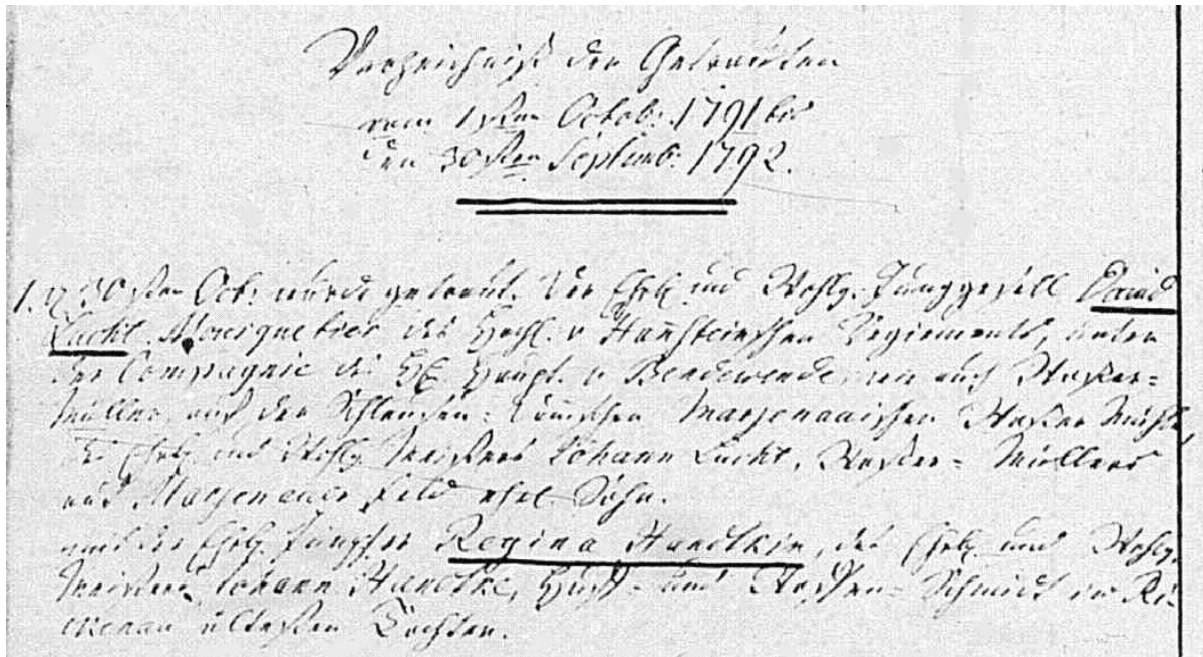 Verzeichniß der Getrauten
vom 1sten Octob: 1791 bis
den 30sten Septemb: 1792.
1. d 30sten Oct: wurde getraut. Der Ehrb und Wohlg. Junggesell David
Lucht Mousquetier des Hochl. v Hansteinschen Regiments, unter
der Compagnie des HE. Haupt. v Bendewende, wie auch Waßer=
Müller auf der Waßer Mühle,
des Ehrb und Wohlg Meisters Johann Lucht, Waßer= Müllers
aus Marjenauer Feld ehel. Sohn.
mit der Ehrb. Jungfer Regina Handtkin, des Ehrb und Wohlg.
Meisters Johann Handtke, Huff= und Waffen= Schmidt in
ältesten Tochter.